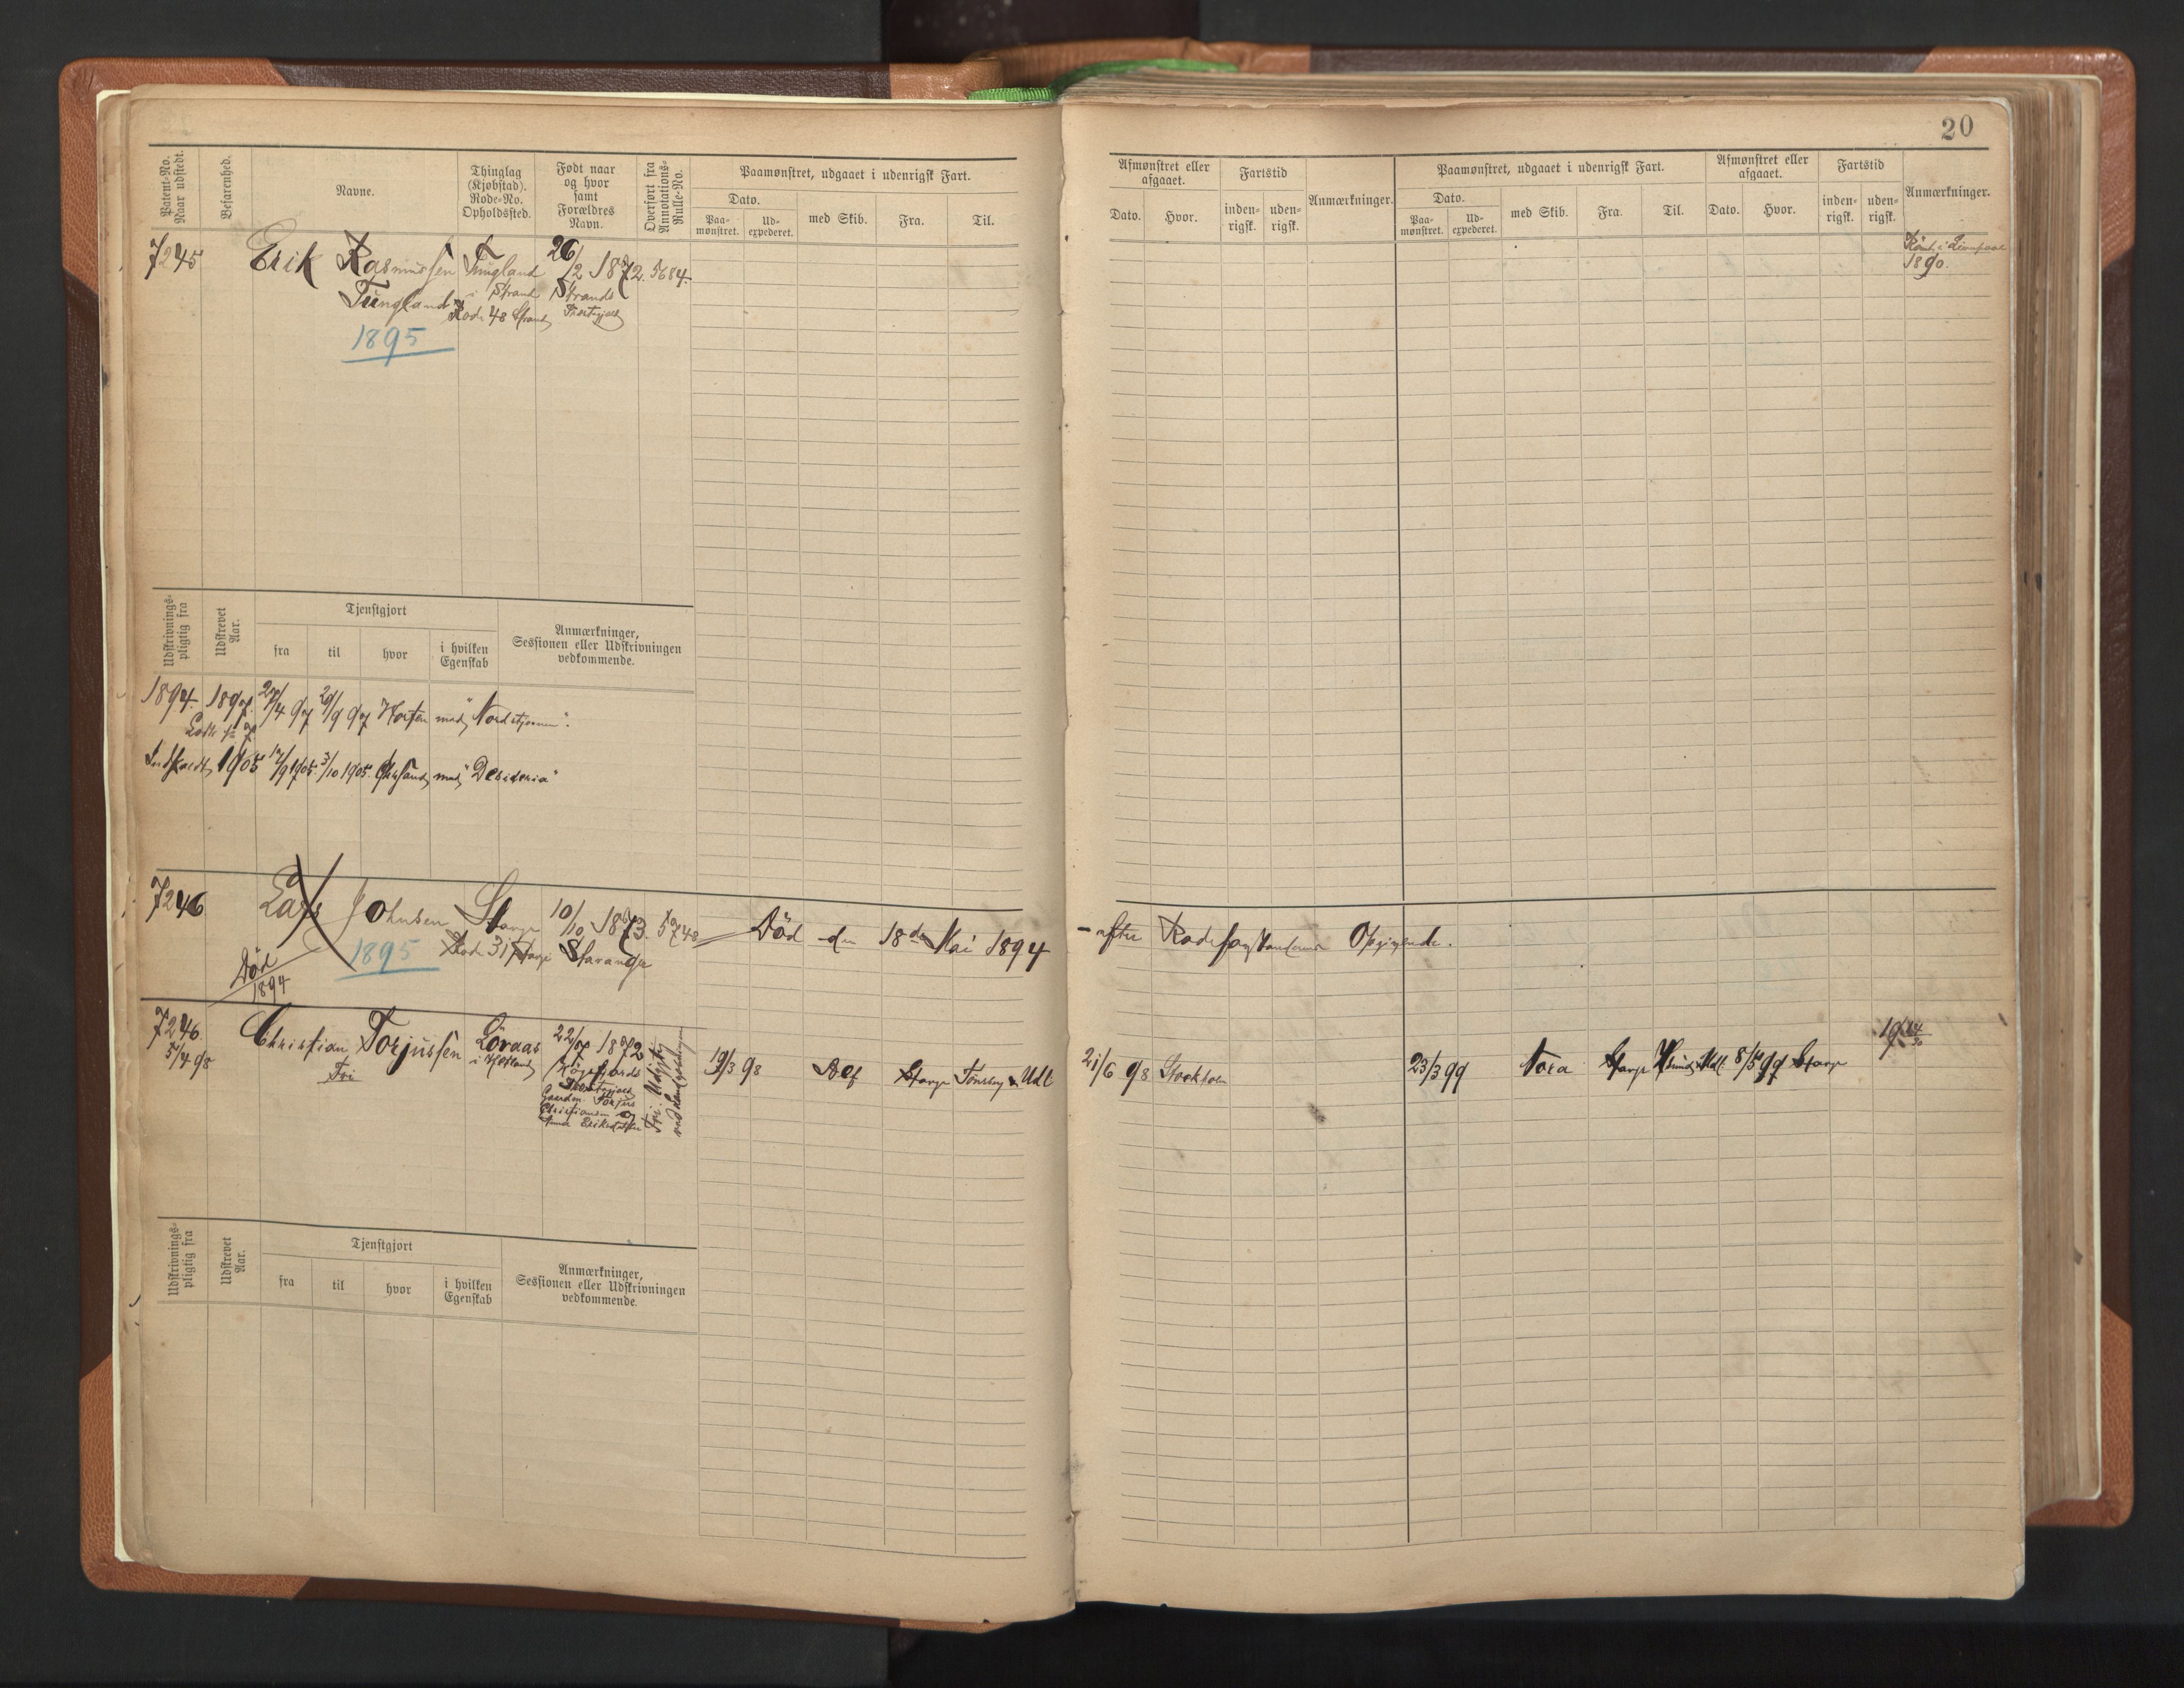 20
Patent-No. Naar udstedt.
Befarenhed.
Navne.
Thinglag (Kjøbstad). Rode-No. Opholdssted.
Født naar og hvor samt Forældres Navn.
Overført fra Annotations-Rulle-No.
Paamønstret, udgaaet i udenrigsk Fart.
Dato.
Paamønstret.
Udexpederet.
med Skib.
Fra.
Til.
Afmønstret eller afgaaet.
Dato.
Hvor.
Fartstid
indenrigsk.
udenrigsk.
Anmærkninger.
Paamønstret, udgaaet i udenrigsk Fart.
Dato.
Paamønstret.
Udexpederet.
med Skib.
Fra.
Til.
Afmønstret eller afgaaet.
Dato.
Hvor.
Fartstid
indenrigsk.
udenrigsk.
Anmærkninger.
7245 Erik Rasmussen Tungland 26/2 1872. 5684.
Tungland i Strand Strands
Rode 48 Strand
1895
1890.
Udskrivningspligtig fra
Udskrevet Aar.
Tjenstgjort
fra
til
hvor
i hvilken Egenskab
Anmærkninger, Sessionen eller Udskrivningen vedkommende.
1894. 1897. 27/4 97 29/9 97 Horten med "Nordstjernen".
1905 17/9 1905. 3/10 1905. med "Desideria"
7246 Lars Johnsen Stavgr 10/10 1873. 5748 Død den 18de Mai 1894 - efter Rodeforstanderens Opgivende.
1895 Rode 31 Stavgr Stavanger
Død 1894
7246 Christian Torjussen Løvaas 22/7 1872 19/3 98 Stavgr Tønsberg & Udl 21/6 98 Stockholm 23/3 99 Nora Stavgr Udl. 8/5 99 Stavgr
5/4 98 Fri i Hetland Høgsfjords
Gaardm. Torjus
Christiansen og
Anna Eriksdatter
Udskrivningspligtig fra
Udskrevet Aar.
Tjenstgjort
fra
til
hvor
i hvilken Egenskab
Anmærkninger, Sessionen eller Udskrivningen vedkommende.